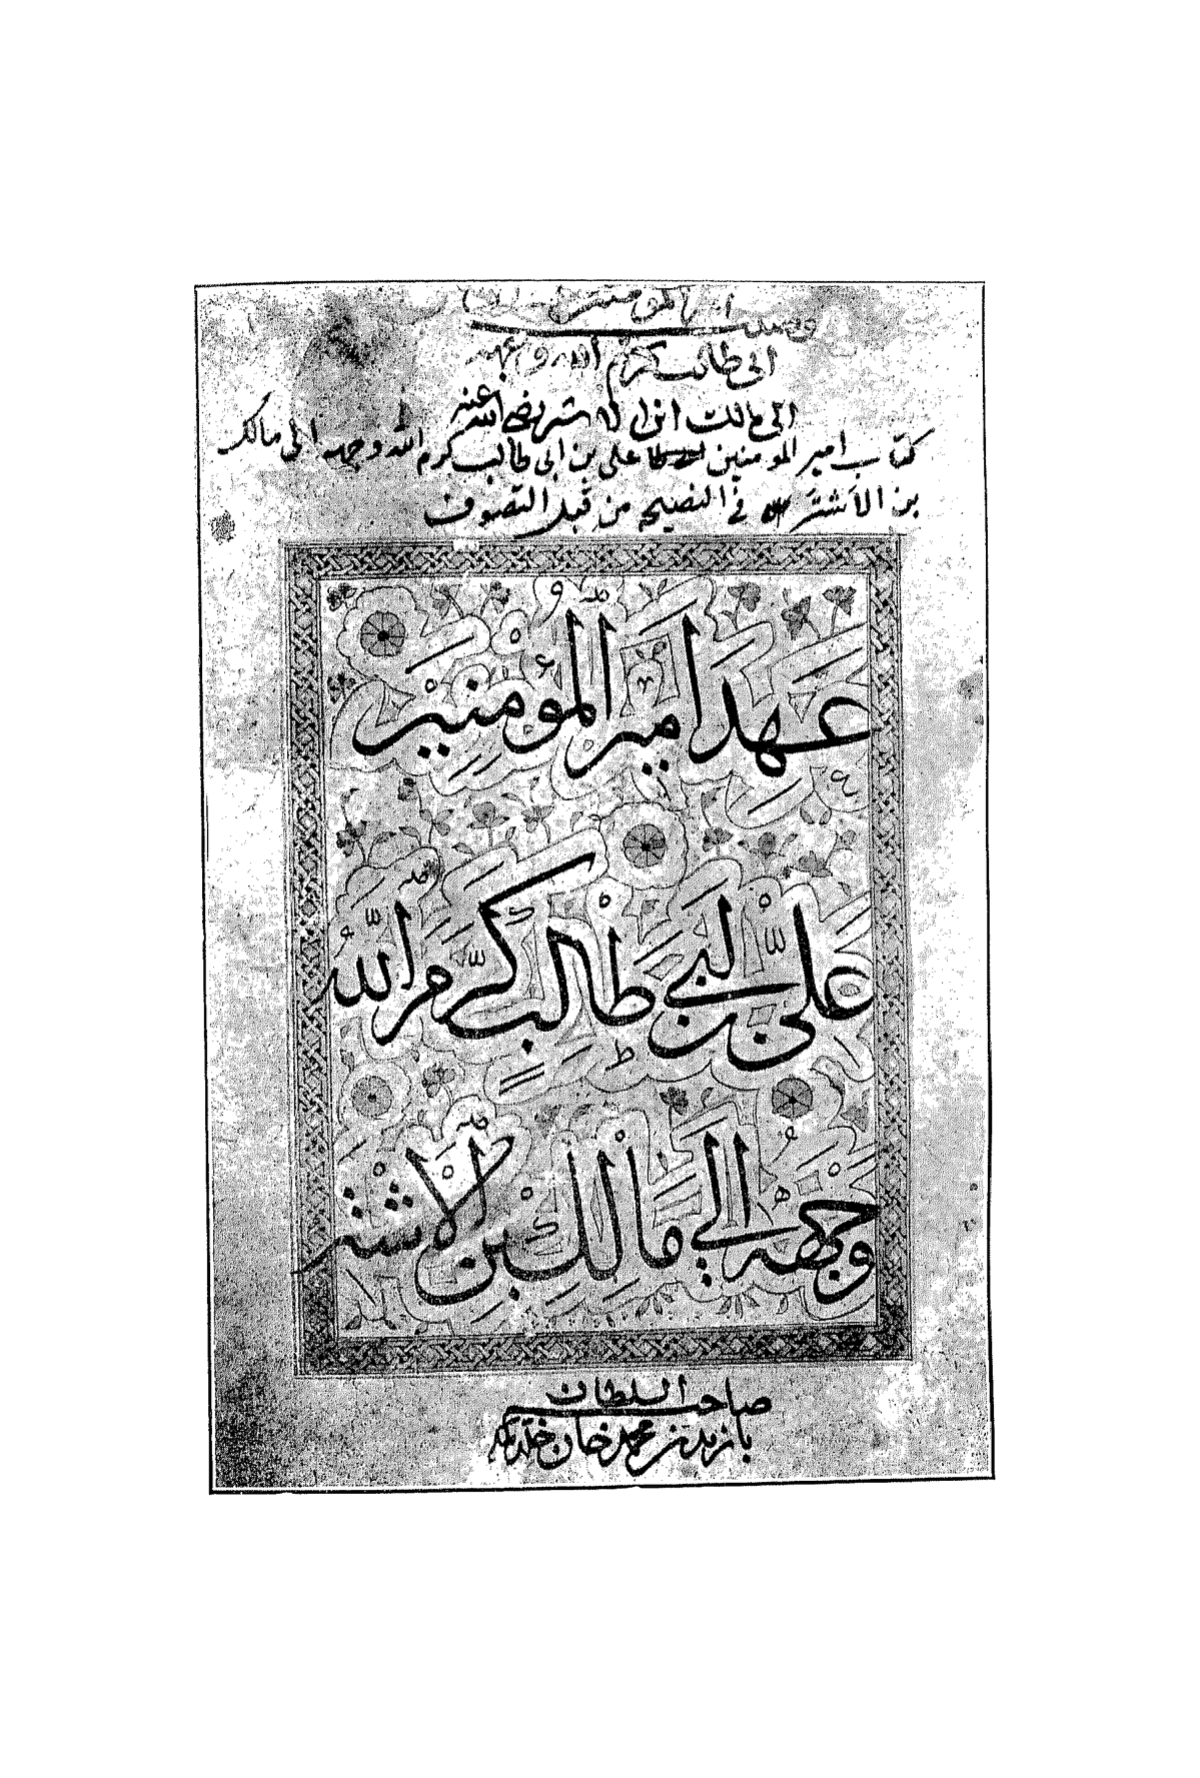 وصية امير المومنين
ابى طالب كرم الله وجهه
الى مالك رضى الله عنه
كتاب امير المومنين على بن ابى طالب كرم الله وجهه الى مالك
بن الاشتر فى النصيحه من قبل التصوف
عَهْدُ اَميرِ الْمُؤْمِنينَ
عَلىِّ بْنِ اَبي طالِبٍ كَرَّمَ اللهُ
وَجْهَهُ اِلي مالِكِ بْنِ الْاَشْتَر
صاحبه السلطان
بايزيد بن محمد خان خلد ملكه